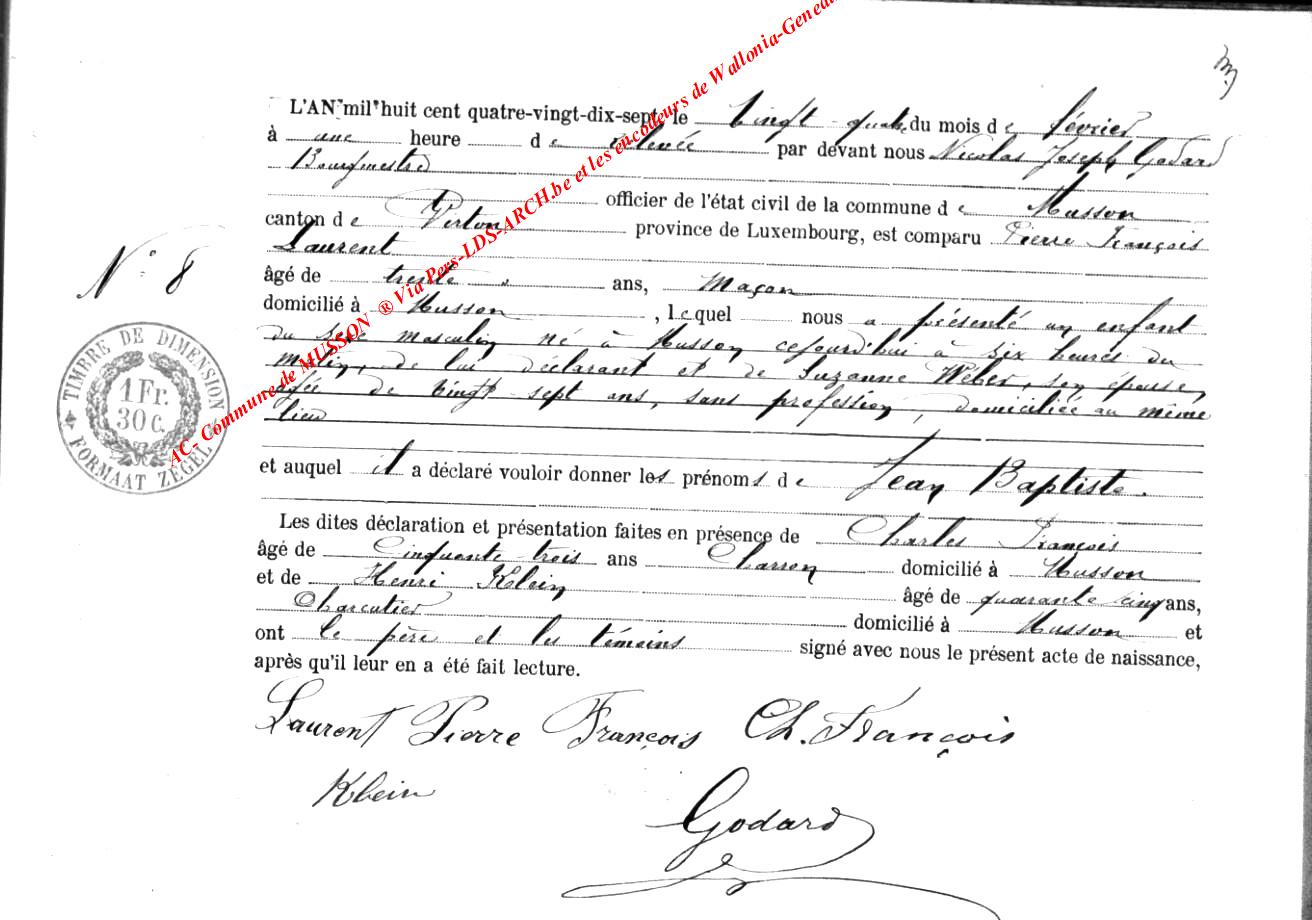 L'AN mil huit cent quatre-vingt-dix-sept, le vingt-quatre du mois de février
à une heure de relevée par devant nous Nicolas Joseph Godard
Bourgmestre
officier de l'état civil de la commune de Musson
canton de Virton province de Luxembourg, est comparu Pierre François
Laurent
âgé de trente ans, Maçon
domicilié à Musson, lequel nous a présenté un enfant
du sexe masculin né à Musson cejourd'hui à six heures du
matin, de lui déclarant et de Suzanne Wéber, son épouse,
âgée de vingt sept ans, sans profession, domiciliée au même
lieu
et auquel il a déclaré vouloir donner les prénoms de Jean Baptiste.
Les dites déclaration et présentation faites en présence de Charles François
âgé de Cinquante trois ans Charron domicilié à Musson
et de Henri Klein âgé de quarante cinq ans,
Charcutier domicilié à Musson et
ont le père et les témoins signé avec nous le présent acte de naissance,
après qu'il leur en a été fait lecture.
Laurent Pierre François Ch. François
Klein
Godard
N° 8
TIMBRE DE DIMENSION
1 Fr.
30 c.
FORMAAT ZEGEL
AC- Commune de MUSSON ® Via Pers-LDS-ARCH.be et les encodeurs de Wallonia-Genea